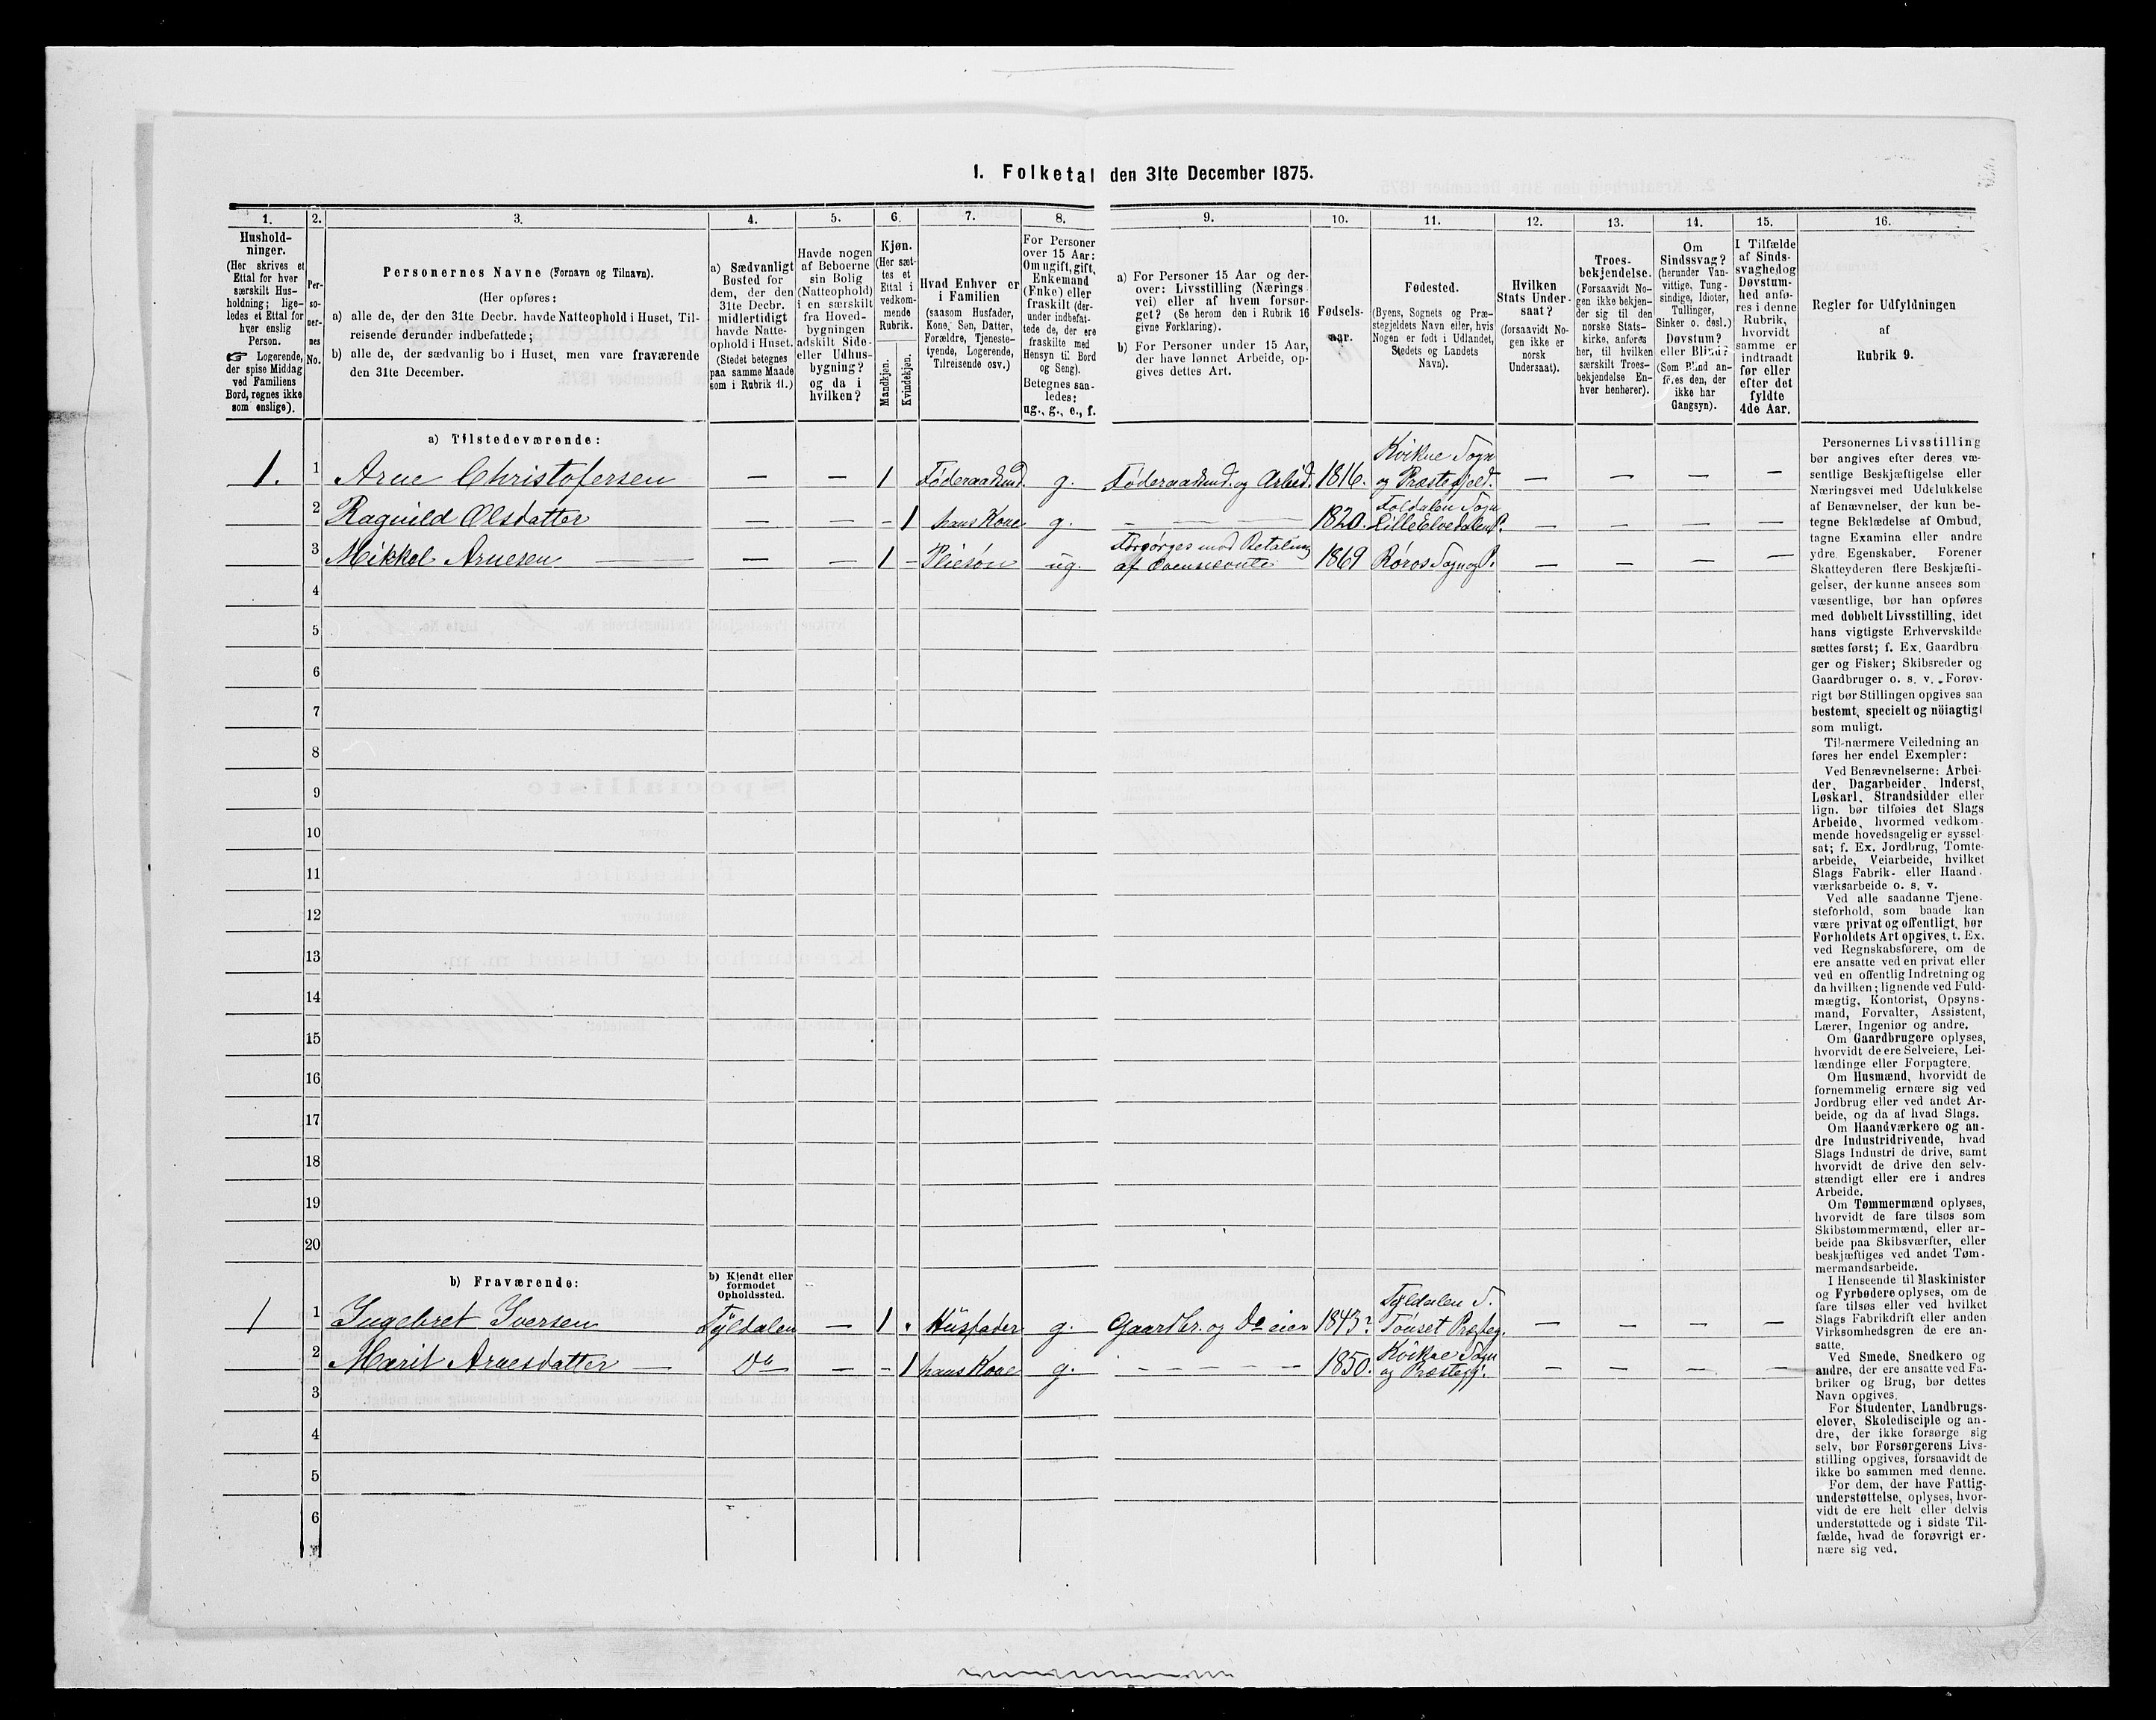 1. Folketal den 31te December 1875.
1.
Hushold-
ninger.
(Her skrives et
Ettal for hver
særskilt Hus-
holdning; lige-
ledes et Ettal for
hver enslig
Person.
☞ Logerende,
der spise Middag
ved Familiens
Bord, regnes ikke
som enslige).
2.
Per-
so-
ner-
nes
No.
3.
Personernes Navne (Fornavn og Tilnavn).
(Her opføres:
a) alle de, der den 31te Decbr. havde Natteophold i Huset, Til-
reisende derunder indbefattede;
b) alle de, der sædvanlig bo i Huset, men vare fraværende
den 31te December.
4.
a) Sædvanligt
Bosted for
dem, der den
31te Decbr.
midlertidigt
havde Natte-
ophold i Huset.
(Stedet betegnes
paa samme Maade
som i Rubrik 11.)
5.
Havde nogen
af Beboerne
sin Bolig
(Natteophold)
i en særskilt
fra Hoved-
bygningen
adskilt Side-
eller Udhus-
bygning?
og da i
hvilken?
6.
Kjøn.
(Her sæt-
tes et
Ettal i
vedkom-
mende
Rubrik.
Mandkjøn.
Kvindekjøn.
7.
Hvad Enhver er
i Familien
(saasom Husfader,
Kone, Søn, Datter,
Forældre, Tjeneste-
tyende, Logerende,
Tilreisende osv.)
8.
For Personer
over 15 Aar:
Om ugift, gift,
Enkemand
(Enke) eller
fraskilt (der-
under indbefat-
tede de, der ere
fraskilte med
Hensyn til Bord
og Seng).
Betegnes saa-
ledes:
ug., g., e., f.
9.
a) For Personer 15 Aar og der-
over: Livsstilling (Nærings
vei) eller af hvem forsør-
get? (Se herom den i Rubrik 16
givne Forklaring).
b) For Personer under 15 Aar,
der have lønnet Arbeide, op-
gives dettes Art.
10.
Fødsels-
aar.
11.
Fødested.
(Byens, Sognets og Præ-
stegjeldets Navn eller, hvis
Nogen er født i Udlandet,
Stedets og Landets
Navn).
12.
Hvilken
Stats Under-
saat?
(forsaavidt No-
gen ikke er
norsk
Undersaat).
13.
Troes-
bekjendelse.
(Forsaavidt No-
gen ikke bekjen-
der sig til den
norske Stats-
kirke, anføres
her, til hvilken
særskilt Troes-
bekjendelse En-
hver henhører).
14.
Om
Sindssvag?
(herunder Van-
vittige, Tung-
sindige, Idioter,
Tullinger,
Sinker o. desl.)
Døvstum?
eller Blind?
(Som Blind an-
føres den, der
ikke har
Gangsyn).
15.
I Tilfælde
af Sinds-
svaghedog
Døvstum-
hed anfø-
res i denne
Rubrik,
hvorvidt
samme er
indtraadt
før eller
efter det
fyldte
4de Aar.
16.
Regler for Udfyldningen
af
Rubrik 9.
a) Tilstedeværende:
1. 1 Arne Christofersen — — 1 Føderaadsmd. g. Føderaadsmd. og Arbeid. 1816. Kvikne Sogn og Præstegjeld. — — — —
2 Ragnild Olsdatter — — - 1 hans Kone g. - — — — 1820. Foldalen Sogn Lille Elvedalen P. — — — —
3 Mikkel Arnesen — — — 1 - Pleisøn ug. Forsørges med Betaling af 1869 Røros Sogn og P. — — — —
4
5
6
7
8
9
10
11
12
13
14
15
16
17
18
19
20
b) Fraværende:
b) Kjendt eller
formodet
Opholdssted.
1 1 Ingebret Iversen Tyldalen — 1 Husfader g. Gaardbr. og Do eier 1843? Tyldalen S. Tønset Præsteg. — — — —
2 Marit Arnesdatter — Do — - 1 hans Kone g. - — — — 1850. Kvikne Sogn og Præstegj. — — — —
3
4
5
6
Personernes Livsstilling
bør angives efter deres væ-
sentlige Beskjæftigelse eller
Næringsvei med Udelukkelse
af Benævnelser, der kun be-
tegne Beklædelse af Ombud,
tagne Examina eller andre
ydre Egenskaber. Forener
Skatteyderen flere Beskjæfti-
gelser, der kunne ansees som
væsentlige, bør han opføres
med dobbelt Livsstilling, idet
hans vigtigste Erhvervskilde
sættes først; f. Ex. Gaardbru
ger og Fisker; Skibsreder og
Gaardbruger o. s. v. Forøv-
rigt bør Stillingen opgives saa
bestemt, specielt og nöiagtigt
som muligt.
Til nærmere Veiledning an
føres her endel Exempler:
Ved Benævnelserne: Arbei-
der, Dagarbeider, Inderst,
Løskarl, Strandsidder eller
lign. bør tilføies det Slags
Arbeide, hvormed vedkom-
mende hovedsagelig er syssel-
sat; f. Ex. Jordbrug, Tomte-
arbeide, Veiarbeide, hvilket
Slags Fabrik- eller Haand-
værksarbeide o. s. v.
Ved alle saadanne Tjene-
steforhold, som baade kan
være privat og offentligt, bør
Forholdets Art opgives, t. Ex.
ved Regnskabsførere, om de
ere ansatte ved en privat eller
ved en offentlig Indretning og
da hvilken; lignende ved Fuld-
mægtig, Kontorist, Opsyns-
mand, Forvalter, Assistent,
Lærer, Ingeniør og andre.
Om Gaardbrugere oplyses,
hvorvidt de ere Selveiere, Lei-
lændinge eller Forpagtere.
Om Husmænd, hvorvidt de
fornemmelig ernære sig ved
Jordbrug eller ved andet Ar-
beide, og da af hvad Slags.
Om Haandværkere og an-
dre Industridrivende, hvad
Slags Industri de drive, samt
hvorvidt de drive den selv-
stændigt eller ere i andres
Arbeide.
Om Tømmermænd oplyses,
hvorvidt de fare tilsøs som
Skibstømmermænd, eller ar-
beide paa Skibsværfter, eller
beskjæftiges ved andet Tøm-
mermandsarbeide.
I Henseende til Maskinister
og Fyrbødere oplyses, om de
fare tilsøs eller ved hvilket
Slags Fabrikdrift eller anden
Virksomhedsgren de ere an-
satte.
Ved Smede, Snedkere og
andre, der ere ansatte ved Fa-
briker og Brug, bør dettes
Navn opgives.
For Studenter, Landbrugs-
elever, Skoledisciple og an-
dre, der ikke forsørge sig
selv, bør Forsørgerens Livs-
stilling opgives, forsaavidt de
ikke bo sammen med denne.
For dem, der have Fattig-
understøttelse, oplyses, hvor-
vidt de ere helt eller delvis
understøttede og i sidste Til-
fælde, hvad de forøvrigt er-
nære sig ved.